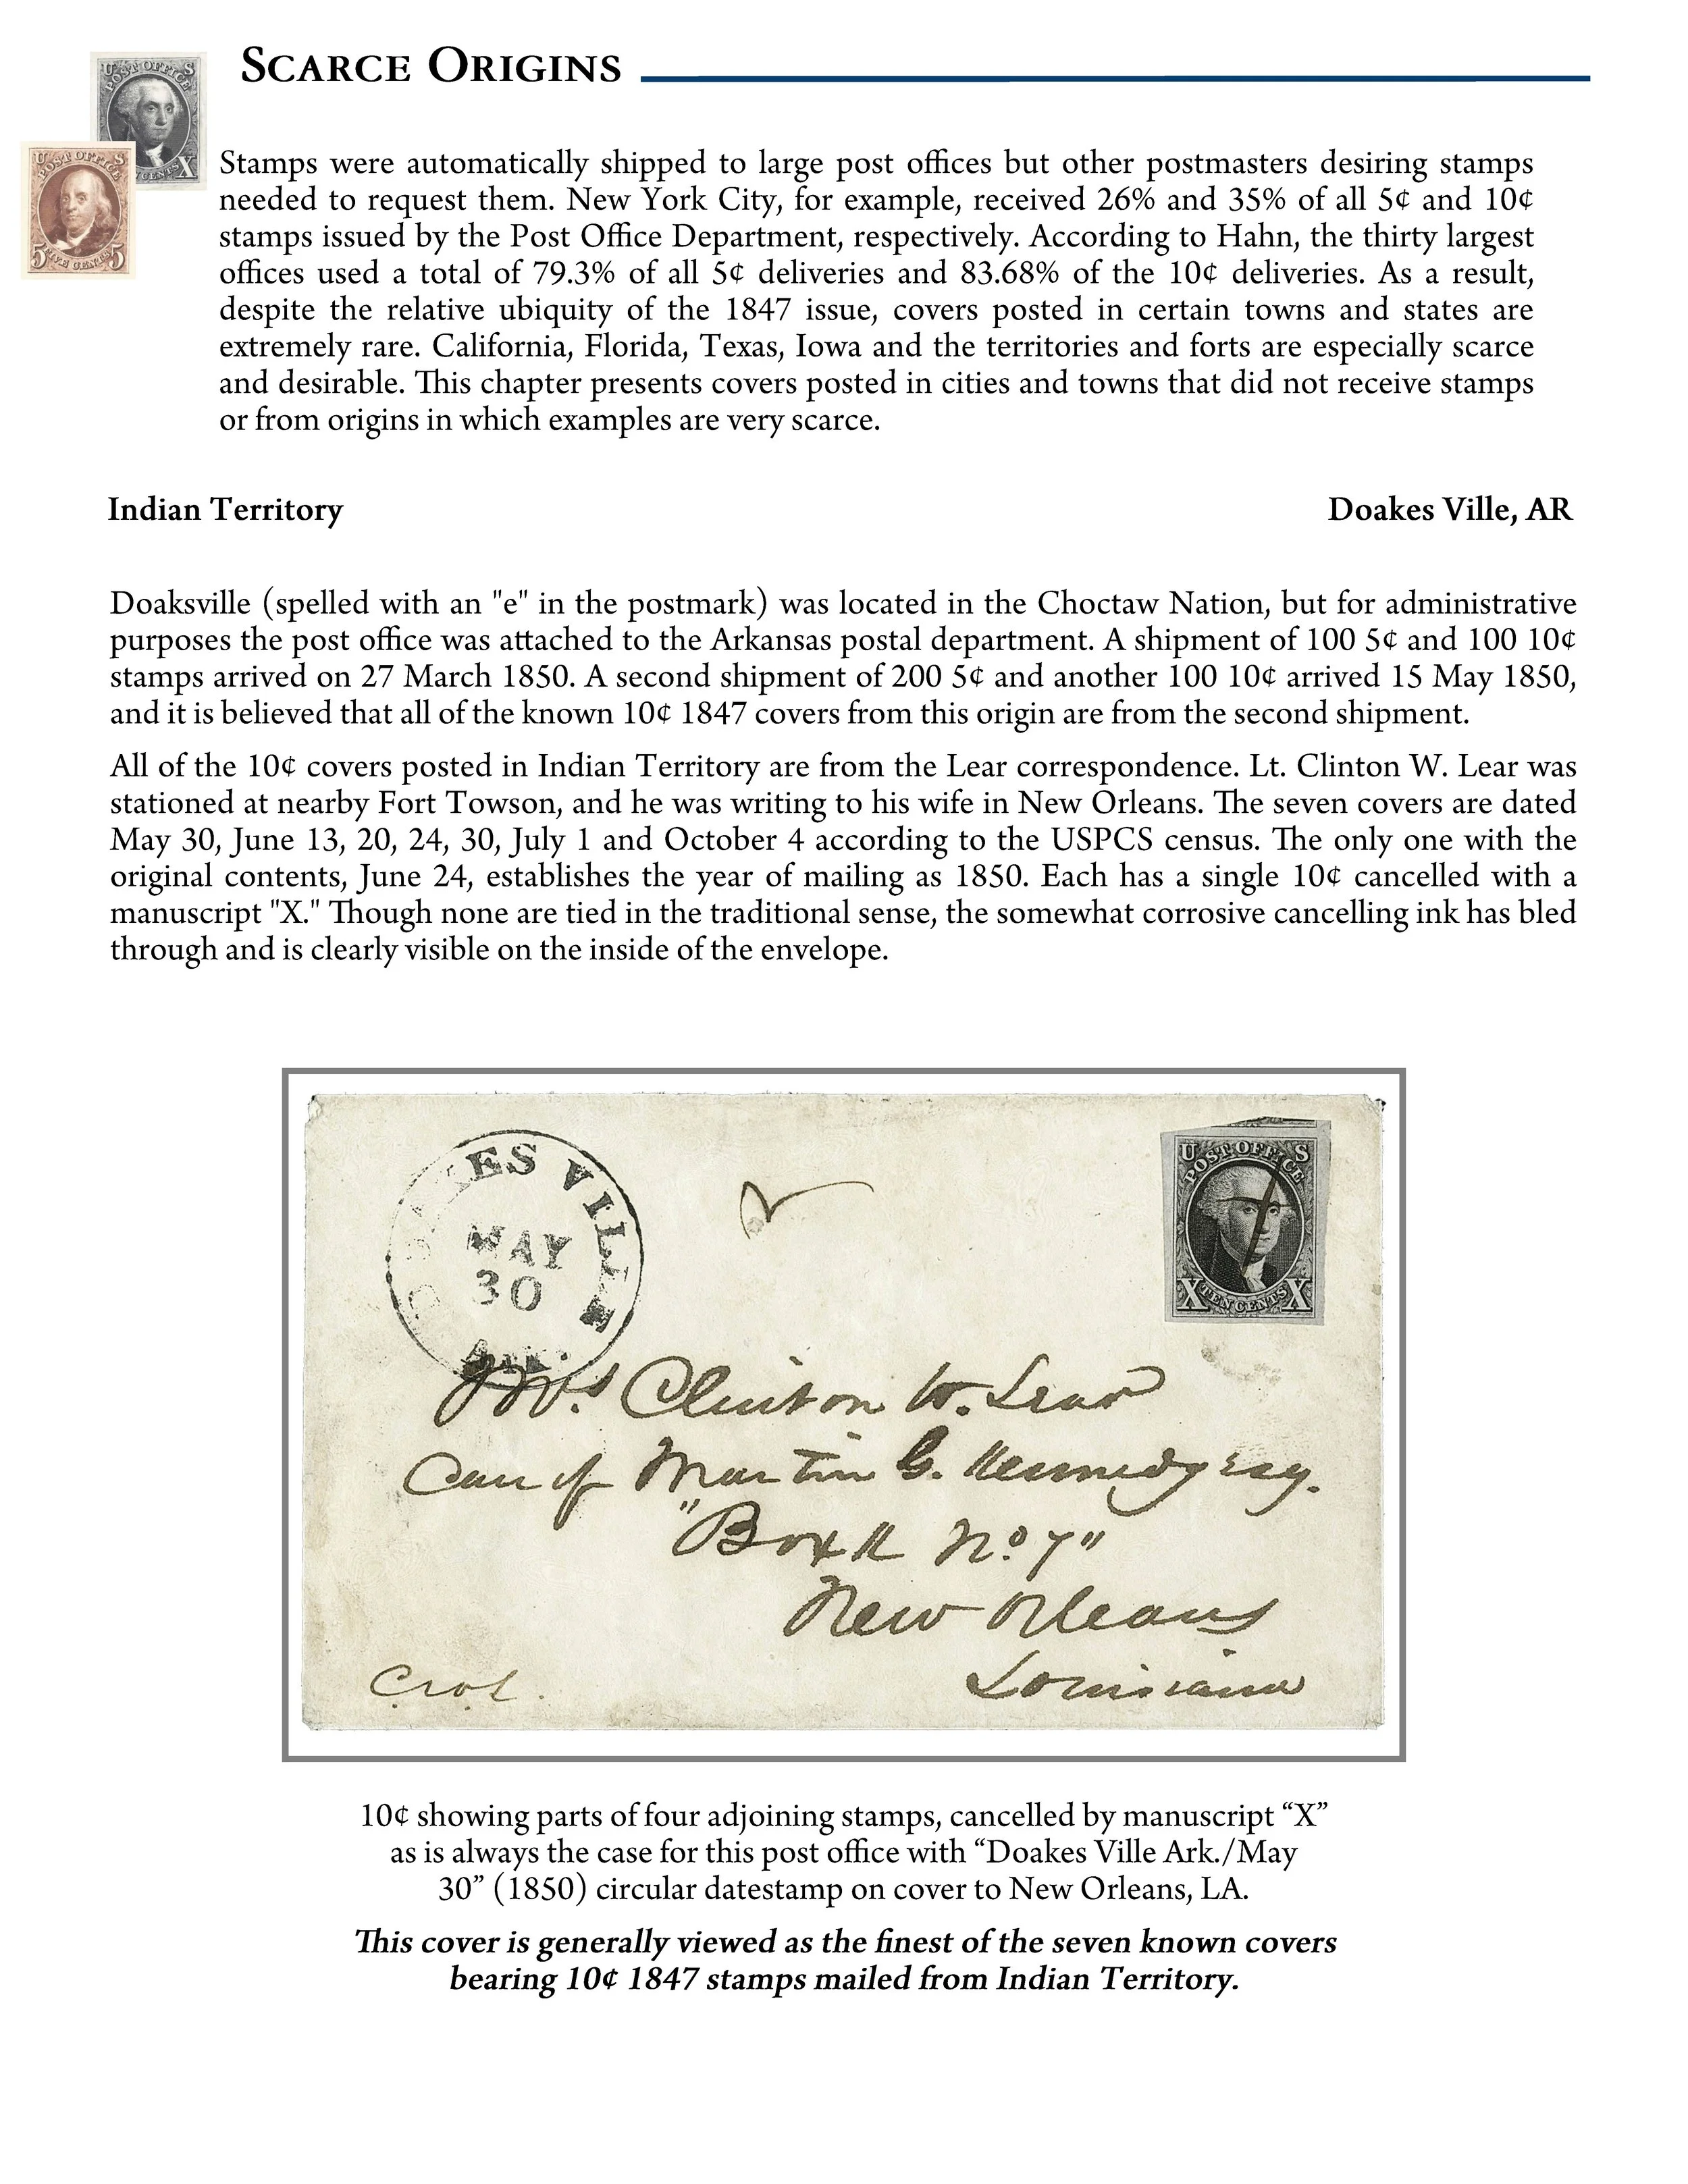 SCARCE ORIGINS
U POST OFFICE S
X
CENTS
U POST OFFICE S
5 FIVE CENTS 5
Stamps were automatically shipped to large post offices but other postmasters desiring stamps
needed to request them. New York City, for example, received 26% and 35% of all 5¢ and 10¢
stamps issued by the Post Office Department, respectively. According to Hahn, the thirty largest
offices used a total of 79.3% of all 5¢ deliveries and 83.68% of the 10¢ deliveries. As a result,
despite the relative ubiquity of the 1847 issue, covers posted in certain towns and states are
extremely rare. California, Florida, Texas, Iowa and the territories and forts are especially scarce
and desirable. This chapter presents covers posted in cities and towns that did not receive stamps
or from origins in which examples are very scarce.
Indian Territory Doakes Ville, AR
Doaksville (spelled with an "e" in the postmark) was located in the Choctaw Nation, but for administrative
purposes the post office was attached to the Arkansas postal department. A shipment of 100 5¢ and 100 10¢
stamps arrived on 27 March 1850. A second shipment of 200 5¢ and another 100 10¢ arrived 15 May 1850,
and it is believed that all of the known 10¢ 1847 covers from this origin are from the second shipment.
All of the 10¢ covers posted in Indian Territory are from the Lear correspondence. Lt. Clinton W. Lear was
stationed at nearby Fort Towson, and he was writing to his wife in New Orleans. The seven covers are dated
May 30, June 13, 20, 24, 30, July 1 and October 4 according to the USPCS census. The only one with the
original contents, June 24, establishes the year of mailing as 1850. Each has a single 10¢ cancelled with a
manuscript "X." Though none are tied in the traditional sense, the somewhat corrosive cancelling ink has bled
through and is clearly visible on the inside of the envelope.
DOAKES VILLE
MAY
30
Ark.
U POST OFFICE S
X TEN CENTS X
Mrs Clinton W. Lear
Care of Martin G. Kennedy Esq.
"Box No 7"
New Orleans
Louisiana
10¢ showing parts of four adjoining stamps, cancelled by manuscript “X”
as is always the case for this post office with “Doakes Ville Ark./May
30” (1850) circular datestamp on cover to New Orleans, LA.
This cover is generally viewed as the finest of the seven known covers
bearing 10¢ 1847 stamps mailed from Indian Territory.